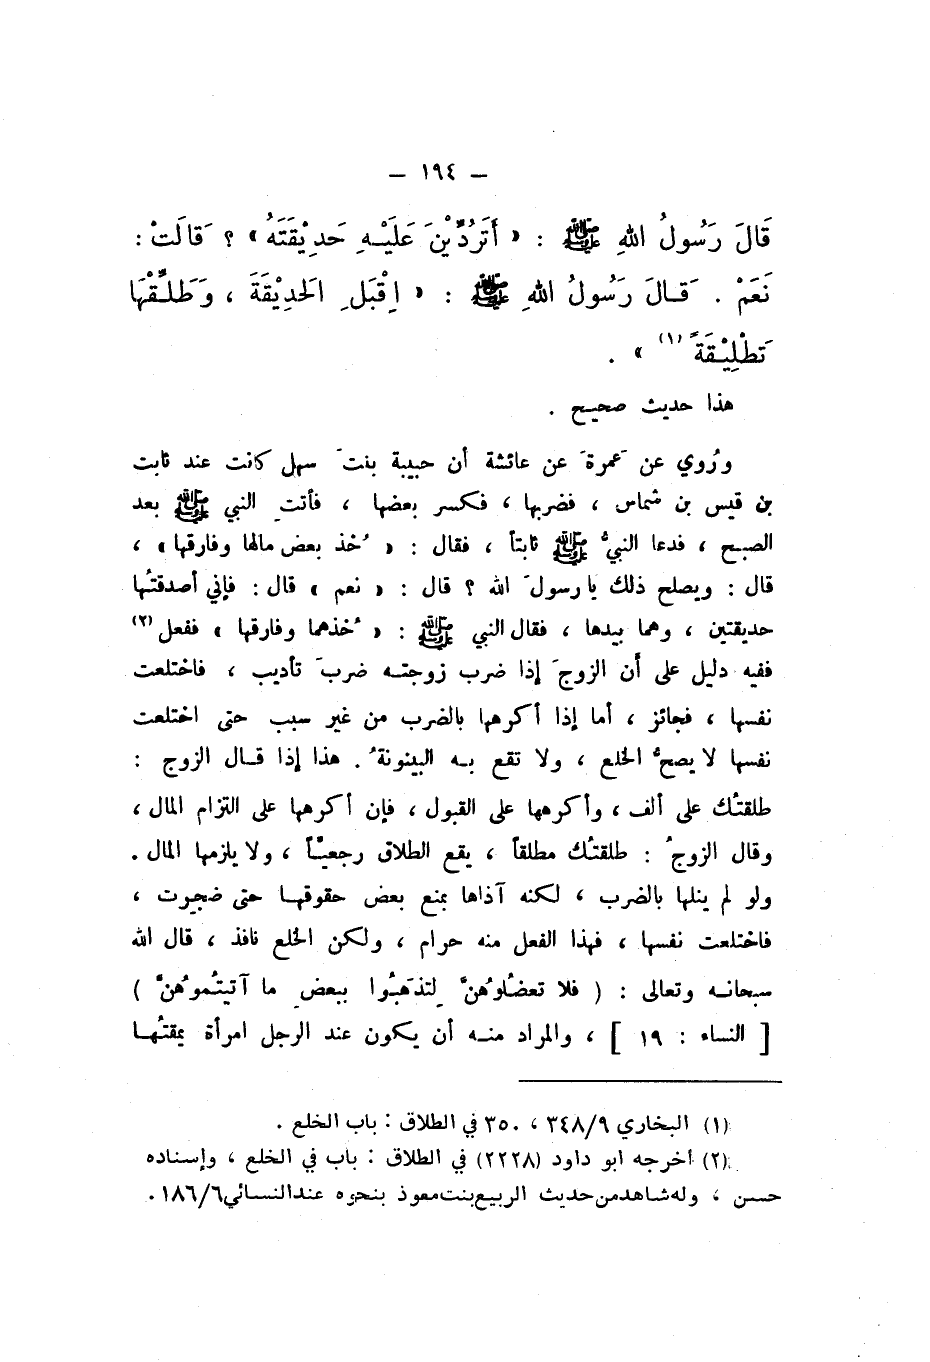 – ١٩٤ –
قَالَ رَسُولُ اللهِ ﷺ : « أَتَرُدِّيْنَ عَلَيْهِ حَدِيْقَتَهُ » ؟ قَالَتْ :
نَعَمْ . قَالَ رَسُولُ اللهِ ﷺ : « اِقْبَلِ الْحَدِيْقَةَ ، وَطَلِّقْهَا
تَطْلِيْقَةً (١) » .
هذا حديث صحيح .
ورُوي عن عَمرةَ عن عائشة أن حبيبة بنتَ سهل كانت عند ثابت
بن قيس بن شماس ، فضربها ، فكسر بعضها ، فأتتِ النبي ﷺ بعد
الصبح ، فدعا النبيُّ ﷺ ثابتاً ، فقال : « خُذ بعض مالها وفارقها » ،
قال : ويصلح ذلك يا رسولَ الله ؟ قال : « نعم » قال : فإني أصدقتُها
حديقتين ، وهما بيدها ، فقال النبي ﷺ : « خُذهما وفارقها » ففعل (٢)
ففيه دليل على أن الزوجَ إذا ضرب زوجته ضربَ تأديب ، فاختلعت
نفسها ، فجائز ، أما إذا أكرهها بالضرب من غير سبب حتى اختلعت
نفسها لا يصحُّ الخلع ، ولا تقع به البينونةُ . هذا إذا قال الزوج :
طلقتُك على ألف ، وأكرهها على القبول ، فإن أكرهها على التزام المال ،
وقال الزوجُ : طلقتُك مطلقاً ، يقع الطلاق رجعيّاً ، ولا يلزمها المال .
ولو لم ينلها بالضرب ، لكنه آذاها بمنع بعض حقوقها حتى ضجرت ،
فاختلعت نفسها ، فهذا الفعل منه حرام ، ولكن الخلع نافذ ، قال الله
سبحانه وتعالى : ( فلا تعضُلوهُنَّ لِتذهَبُوا ببعضِ ما آتيتُموهُنَّ )
[ النساء : ١٩ ] ، والمراد منه أن يكون عند الرجل امرأة يمقتُها
(١) البخاري ٣٤٨/٩ ، ٣٥٠ في الطلاق : باب الخلع .
(٢) أخرجه ابو داود (٢٢٢٨) في الطلاق : باب في الخلع ، وإسناده
حسن ، وله شاهد من حديث الربيع بنت معوذ بنحوه عند النسائي ١٨٦/٦ .